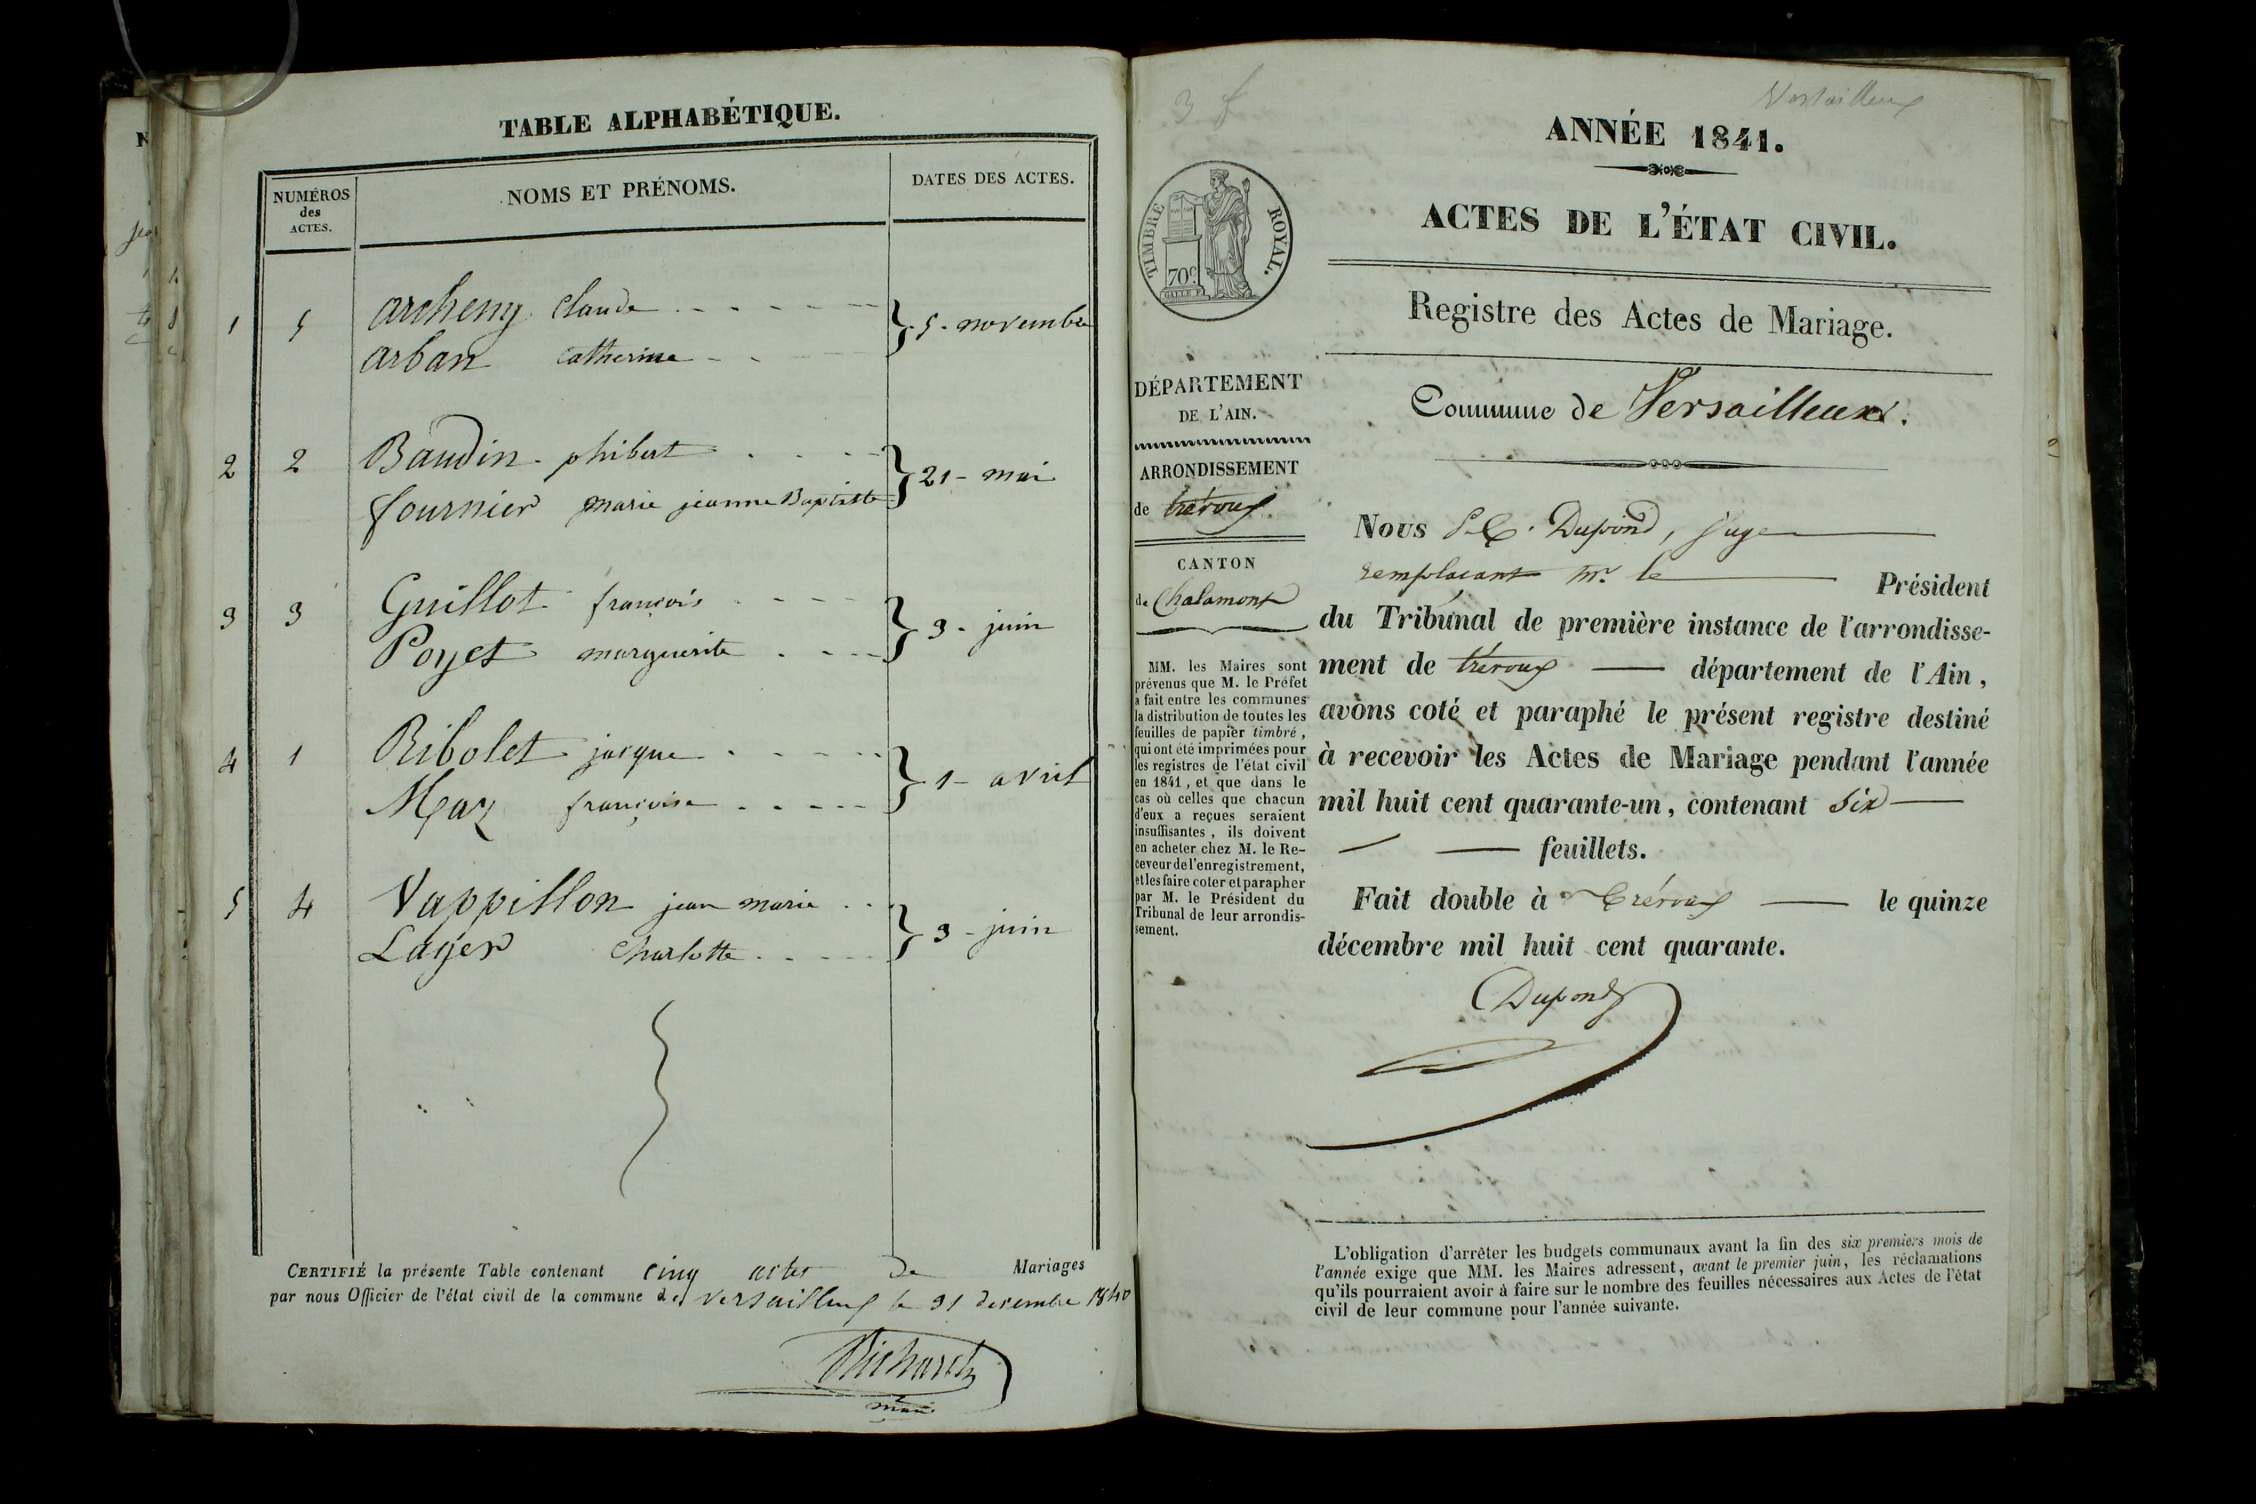 TABLE ALPHABÉTIQUE.
NUMÉROS des ACTES.
NOMS ET PRÉNOMS.
DATES DES ACTES.
1 5 archeny claude } 5 - novembre
arban catherine
2 2 Baudin phibert } 21 - mai
fournier marie jeanne Baptiste
3 3 Guillot françois } 3 - juin
Poyet marguerite
4 1 Ribolet jacque } 1 - avril
Maz françoise
5 4 Vappillon jean marie } 3 - juin
Layer Charlotte
CERTIFIÉ la présente Table contenant cinq actes de Mariages
par nous Officier de l'état civil de la commune de Versailleux le 31 decembre 1840
Richard
maire
3 f
Versailleux
ANNÉE 1841.
ACTES DE L'ÉTAT CIVIL.
TIMBRE ROYAL.
70c
Registre des Actes de Mariage.
Commune de Versailleux.
DÉPARTEMENT
DE L'AIN.
ARRONDISSEMENT
de trévoux.
CANTON
de Chalamont
MM. les Maires sont
prévenus que M. le Préfet
a fait entre les communes
la distribution de toutes les
feuilles de papier timbré,
qui ont été imprimées pour
les registres de l'état civil
en 1841, et que dans le
cas où celles que chacun
d'eux a reçues seraient
insuffisantes, ils doivent
en acheter chez M. le Re-
ceveur de l'enregistrement,
et les faire coter et parapher
par M. le Président du
Tribunal de leur arrondis-
sement.
Nous Dupond, juge
remplaçant Mr. le Président
du Tribunal de première instance de l'arrondisse-
ment de trévoux département de l'Ain,
avons coté et paraphé le présent registre destiné
à recevoir les Actes de Mariage pendant l'année
mil huit cent quarante-un, contenant six
feuillets.
Fait double à Trévoux le quinze
décembre mil huit cent quarante.
Dupond
L'obligation d'arrêter les budgets communaux avant la fin des six premiers mois de
l'année exige que MM. les Maires adressent, avant le premier juin, les réclamations
qu'ils pourraient avoir à faire sur le nombre des feuilles nécessaires aux Actes de l'état
civil de leur commune pour l'année suivante.